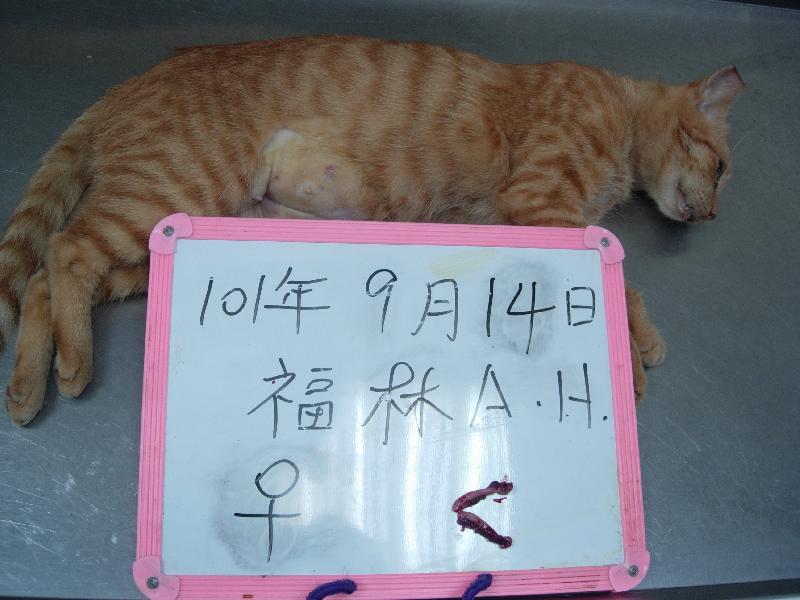 101年 9月14日
福林A.H.
♀